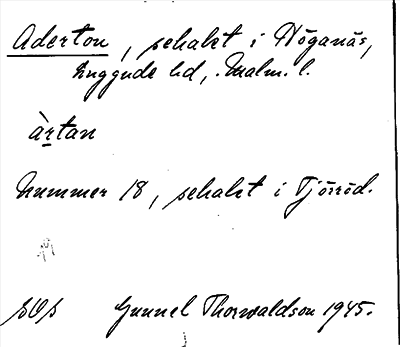 Aderton, schakt i Höganäs,
Luggude hd, Malm. l.
àrtan
Nummer 18, schakt i Tjörröd.
SOS Gunnel Thorwaldson 1945.